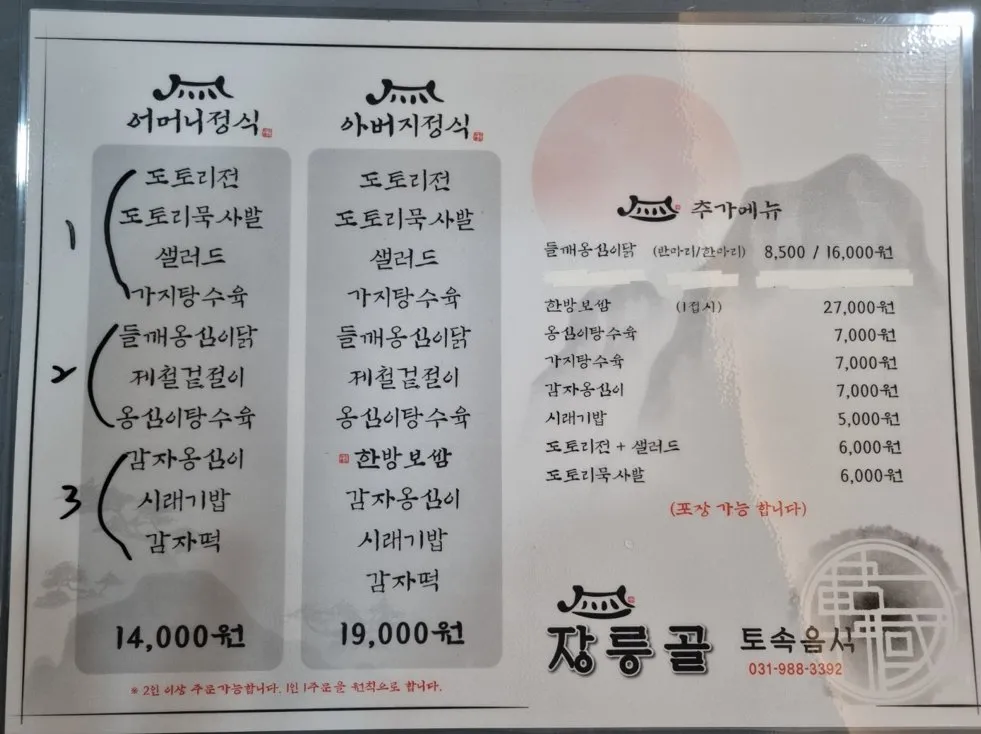 어머니정식
1
도토리전
도토리묵사발
샐러드
가지탕수육
2
들깨옹심이닭
제철겉절이
옹심이탕수육
3
감자옹심이
시래기밥
감자떡
14,000원
아버지정식
도토리전
도토리묵사발
샐러드
가지탕수육
들깨옹심이닭
제철겉절이
옹심이탕수육
한방보쌈
감자옹심이
시래기밥
감자떡
19,000원
※ 2인 이상 주문가능합니다. 1인 1주문을 원칙으로 합니다.
추가메뉴
들깨옹심이닭 (반마리/한마리) 8,500 / 16,000원
한방보쌈 (1접시) 27,000원
옹심이탕수육 7,000원
가지탕수육 7,000원
감자옹심이 7,000원
시래기밥 5,000원
도토리전 + 샐러드 6,000원
도토리묵사발 6,000원
(포장 가능 합니다)
장릉골 토속음식
031-988-3392